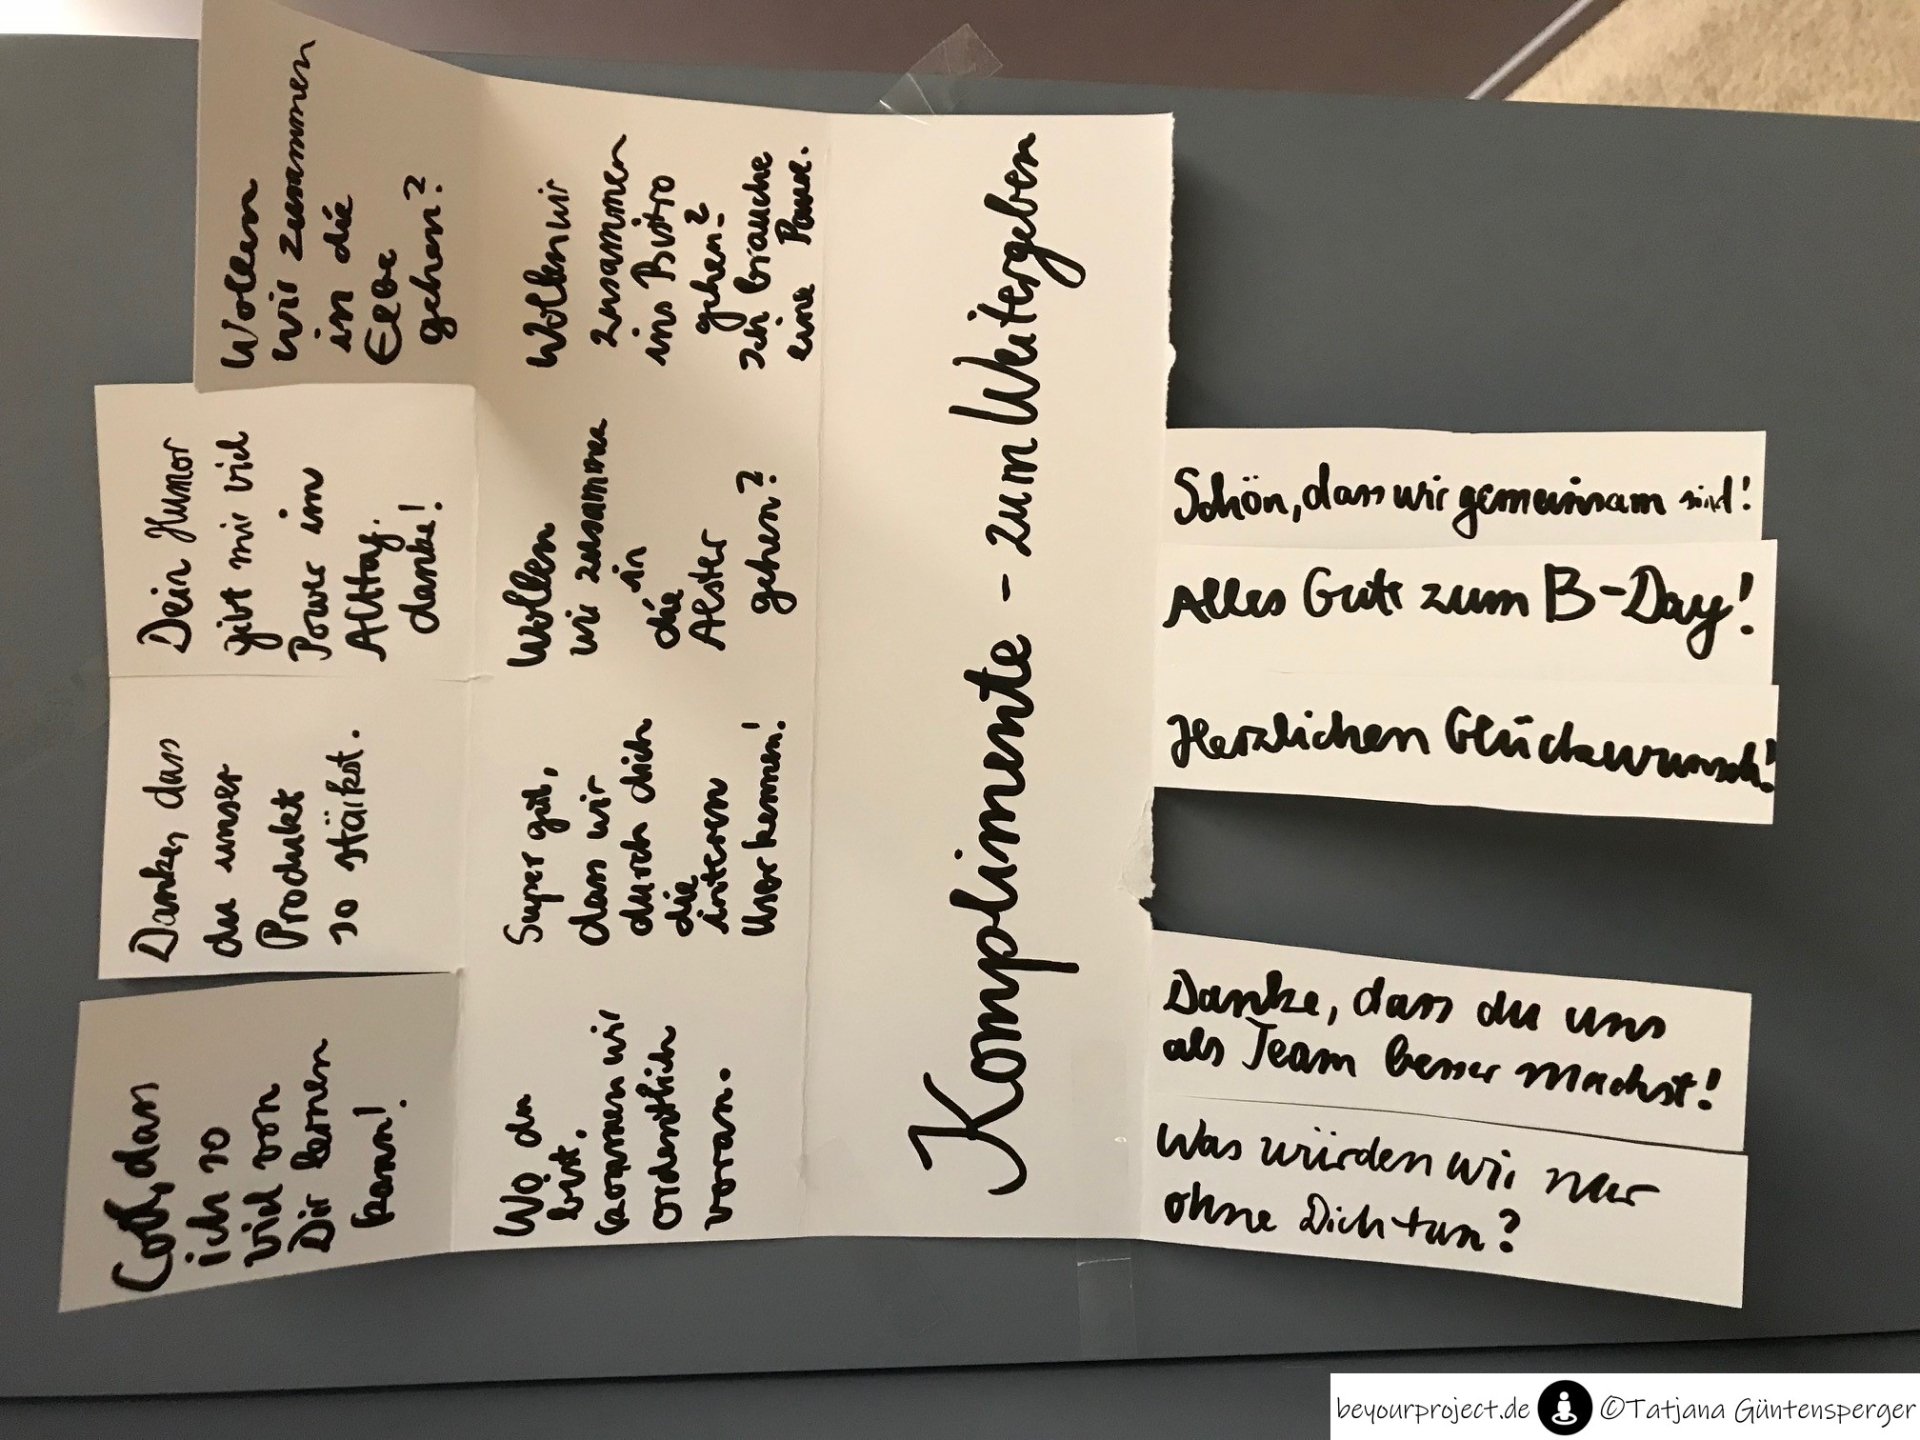 Komplimente - zum Weitergeben
Cool, dass
ich so
viel von
Dir lernen
kann!
Danke, dass
du unser
Produkt
so stärkst.
Dein Humor
gibt mir viel
Power im
Alltag.
danke!
Wollen
wir zusammen
in die
Elbe
gehen?
Wo du
bist,
kommen wir
ordentlich
voran.
Super gut,
dass wir
durch dich
die
internen
User kennen!
Wollen
wir zusamme
in
die
Alster
gehen?
Wollen wir
zusammen
ins Bistro
gehen?
Ich brauche
eine Pause.
Schön, dass wir gemeinsam sind!
Alles Gute zum B-Day!
Herzlichen Glückwunsch!
Danke, dass du uns
als Team besser machst!
Was würden wir nur
ohne Dich tun?
beyourproject.de ©Tatjana Güntensperger